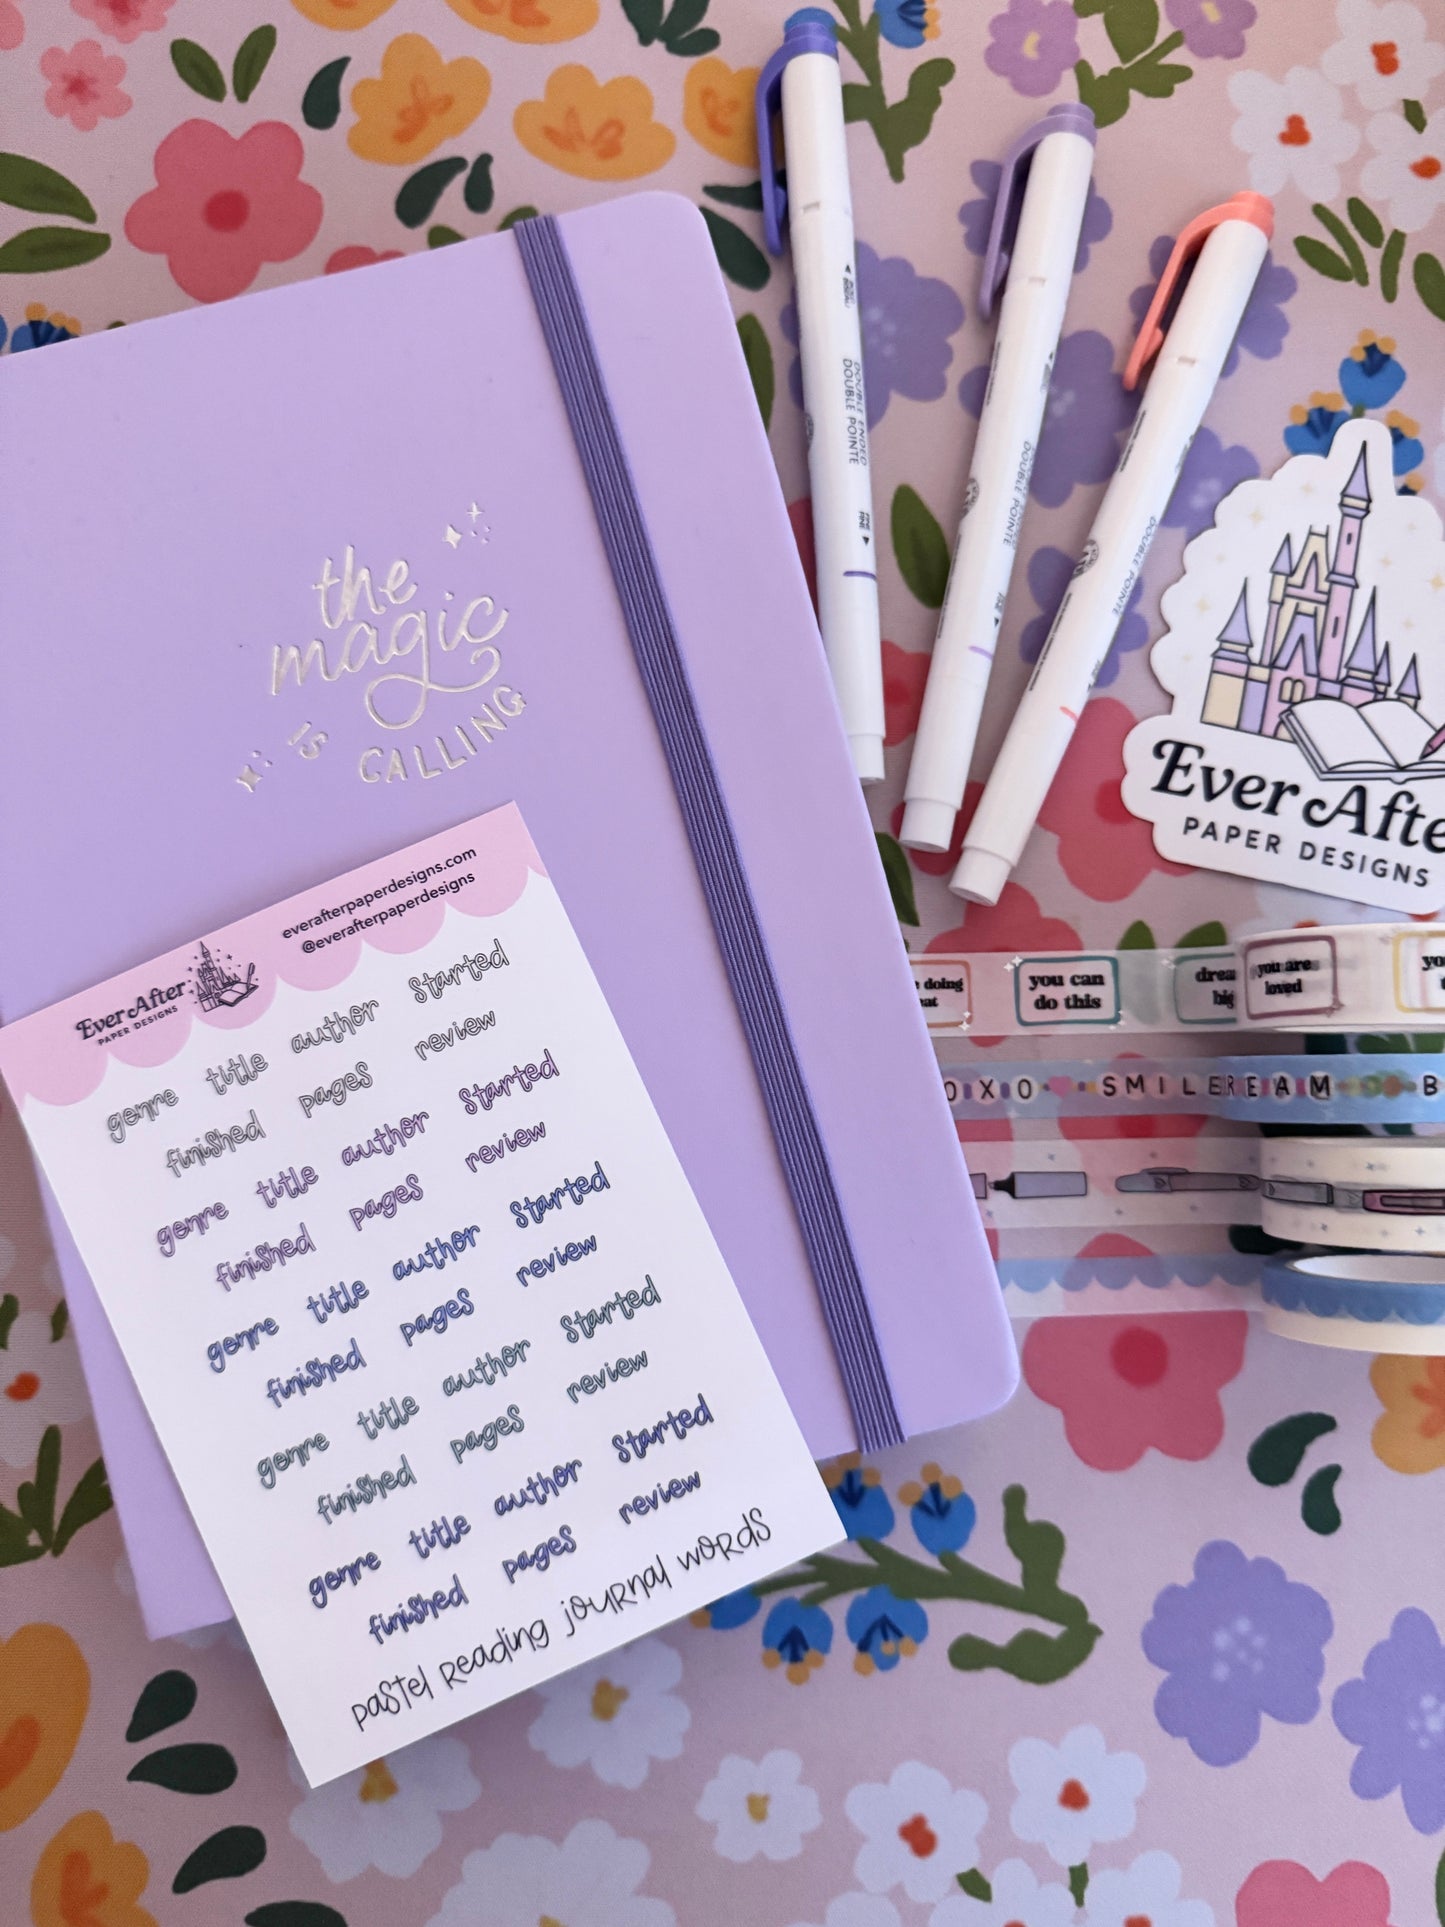 the
magic
IS CALLING
everafterpaperdesigns.com
@everafterpaperdesigns
Ever After
PAPER DESIGNS
genre title author started
finished pages review
genre title author started
finished pages review
genre title author started
finished pages review
genre title author started
finished pages review
genre title author started
finished pages review
pastel reading journal words
DOUBLE ENDED
DOUBLE POINTE
FINE
DOUBLE POINTE
DOUBLE POINTE
Ever Afte
PAPER DESIGNS
doing
you can
do this
drea
big
you are
loved
yo
OXO SMILE REAM B